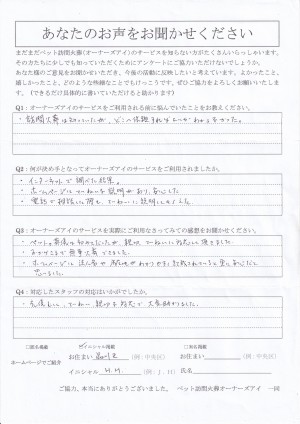 あなたのお声をお聞かせください
まだまだペット訪問火葬(オーナーズアイ)のサービスを知らない方がたくさんいらっしゃいます。
その方たちに少しでも知っていただくためにアンケートにご協力いただけないでしょうか。
あなた様のご意見をお聞かせいただき、今後の活動に反映したいと考えています。よかったこと、
嬉しかったこと、どのような些細なことでもけっこうです。ぜひご協力をよろしくお願いいたしま
す。(できるだけ具体的に書いていただけると助かります)
Q1:オーナーズアイのサービスをご利用される前に悩んでいたことをお教えください。
・訪問火葬は初めてだったが、どこに依頼すればよいかわからなかった。
Q2:何が決め手となってオーナーズアイのサービスをご利用されましたか。
・インターネットで調べた結果。
・ホームページにていねいな説明があり、安心した。
・電話で相談した際も、ていねいに説明して頂いた。
Q3:オーナーズアイのサービスを実際にご利用なさってみての感想をお聞かせください。
・ペットの葬儀は初めてだったが、親切、ていねいに対応して頂きました。
・おかげさまで無事火葬できました。
・ホームページに
思いました。
Q4:対応したスタッフの対応はいかがでしたか。
・ていねい、親切な対応で大変助かりました。
ホームページでご紹介
□匿名掲載
イニシャル掲載
□実名掲載
お住まい
(例:中央区)
お住まい
(例:中央区)
イニシャル H.M.
(例:J.H)
氏名
ご協力、本当にありがとうございました。 ペット訪問火葬オーナーズアイ 一同